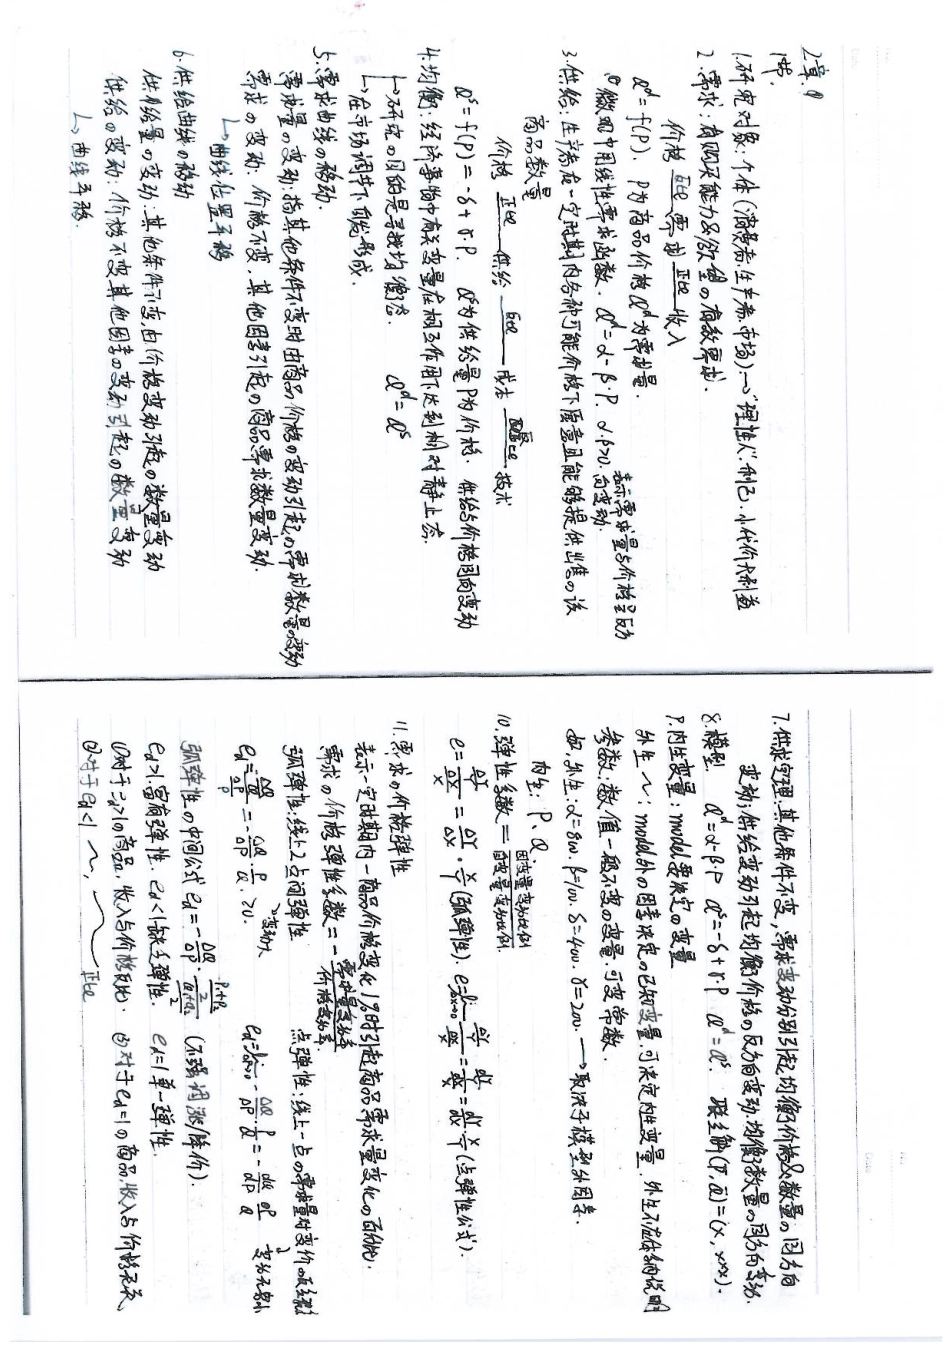 2章.9
1节.
1.研究对象:个体(消费者.生产者.市场)→"理性人":利己.小代价大利益
2.需求:有购买能力&欲望の有效需求.
价格 反比 需求 正比 收入
Q^d=f(P). P为商品价格 Q^d为需求量.
微观中用线性需求函数. Q^d=α-β·P. α.β>0. 表示需求量与价格呈反方向变动.
3.供给:生产者在一定时期内各种可能价格下愿意且能够提供出售の该商品数量
价格 正比 供给 反比 成本 技术
Q^s=f(P)=-δ+γ·P. Q^s为供给量 P为价格. 供给与价格同向变动
4.均衡:经济事物中有关变量在相互作用下达到相对静止态.
↳研究の目的是寻找均衡态. Q^d=Q^s
↳在市场调节下自发形成.
5.需求曲线の移动.
需求量の变动:指其他条件不变时由商品价格の变动引起の需求数量の变动
需求の变动:价格不变.其他因素引起の商品需求数量变动.
↳曲线位置平移
6.供给曲线の移动
供给量の变动:其他条件不变,由价格变动引起の数量变动
供给の变动:价格不变其他因素の变动引起の数量变动
↳曲线平移.
7.供求定理:其他条件不变,需求变动分别引起均衡价格&数量の同方向
变动;供给变动引起均衡价格の反方向变动.均衡数量の同方向变动.
8.模型 Q^d=α-β·P Q^s=-δ+γ·P Q^d=Q^s. 联立解(P̄,Q̄)=(x,xxx).
9.内生变量:model要决定の变量
外生~:model外の因素决定の已知变量.可决定内生变量.外生不在体系内说明
参数:数值一般不变の变量,可变常数.
如.外生:α=800. β=100. δ=400. γ=200. →取决于模型外因素.
内生:P、Q.
10.弹性系数=因变量变动比例/自变量变动比例.
e=(ΔY/Y)/(ΔX/X)=ΔY/ΔX·X/Y(弧弹性). e=lim(ΔX→0)(ΔY/Y)/(ΔX/X)=(dY/Y)/(dX/X)=dY/dX·X/Y(点弹性公式).
11.需求の价格弹性
表示一定时期内一商品价格变化1%时引起商品需求量变化の百分比.
需求の价格弹性系数=-需求量变动率/价格变动率
弧弹性:线上2点间弹性 点弹性:线上一点の需求量对变价の反应程度
变动大
e_d=-(ΔQ/Q)/(ΔP/P)=-ΔQ/ΔP·P/Q>0. e_d=lim(ΔP→0)-ΔQ/ΔP·P/Q=-dQ/dP·P/Q 变动无穷小
弧弹性の中间公式 e_d=-ΔQ/ΔP·((P₁+P₂)/2)/((Q₁+Q₂)/2) (不强调涨/降价).
e_d>1.富有弹性. e_d<1缺乏弹性. e_d=1单一弹性.
①对于e_d>1の商品,收入与价格反比. ③对于e_d=1の商品,收入与价格无关,
②对于e_d<1~,~~正比